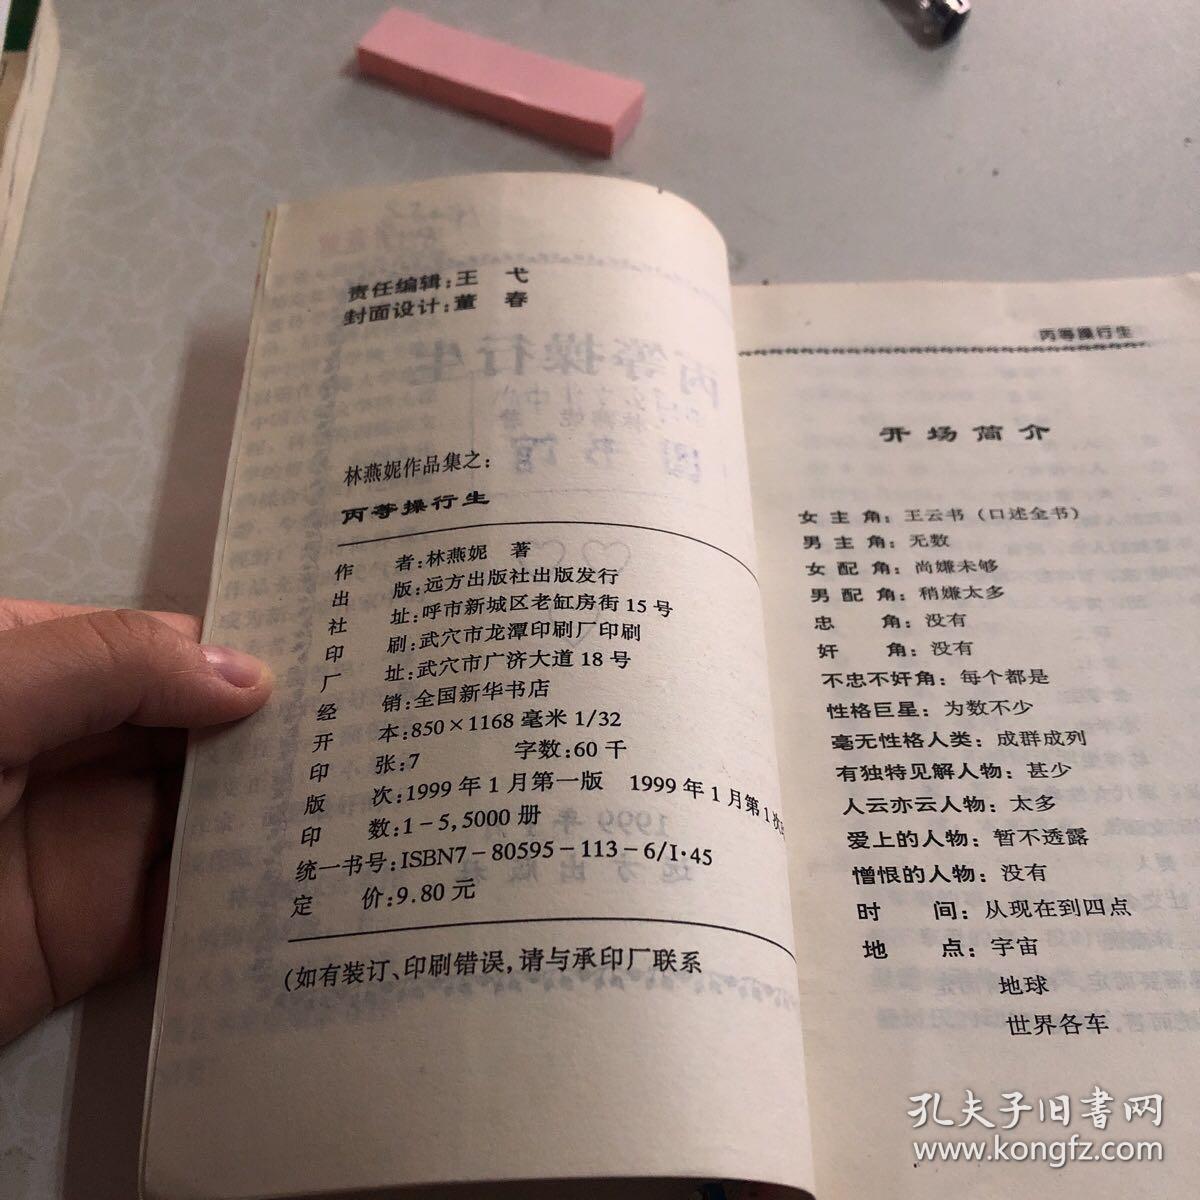 责任编辑：王　弋
封面设计：董　春
林燕妮作品集之：
丙等操行生
作　　者：林燕妮　著
出　　版：远方出版社出版发行
社　　址：呼市新城区老缸房街 15 号
印　　刷：武穴市龙潭印刷厂印刷
厂　　址：武穴市广济大道 18 号
经　　销：全国新华书店
开　　本：850×1168 毫米 1/32
印　　张：7　　字数：60 千
版　　次：1999 年 1 月第一版　1999 年 1 月第 1 次
印　　数：1－5,5000 册
统一书号：ISBN7－80595－113－6/I·45
定　　价：9.80 元
(如有装订、印刷错误,请与承印厂联系
丙等操行生
开场简介
女主角：王云书（口述全书）
男主角：无数
女配角：尚嫌未够
男配角：稍嫌太多
忠　　角：没有
奸　　角：没有
不忠不奸角：每个都是
性格巨星：为数不少
毫无性格人类：成群成列
有独特见解人物：甚少
人云亦云人物：太多
爱上的人物：暂不透露
憎恨的人物：没有
时　　间：从现在到四点
地　　点：宇宙
地球
世界各车
孔夫子旧书网
www.kongfz.com